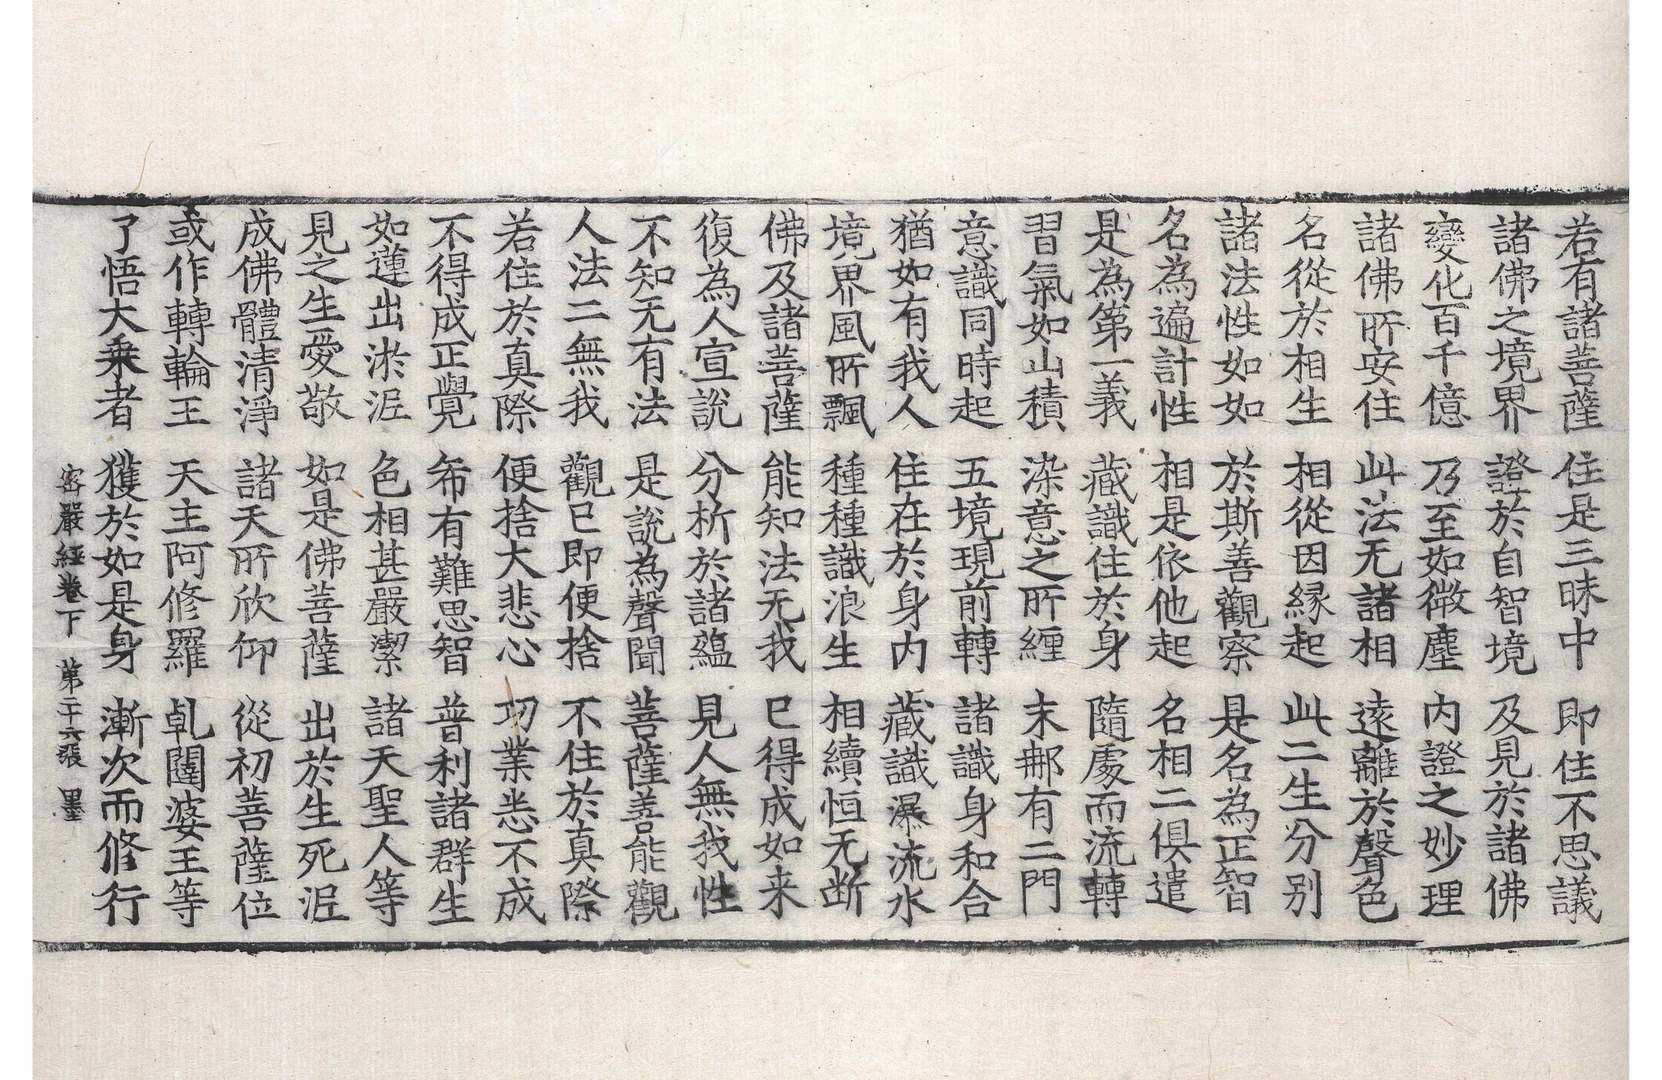 若有諸菩薩 住是三昧中 即住不思議
諸佛之境界 證於自智境 及見於諸佛
變化百千億 乃至如微塵 内證之妙理
諸佛所安住 此法无諸相 遠離於聲色
名從於相生 相從因縁起 此二生分别
諸法性如如 於斯善觀察 是名為正智
名為遍計性 相是依他起 名相二俱遣
是為第一義 藏識住於身 隨處而流轉
習氣如山積 染意之所纒 末那有二門
意識同時起 五境現前轉 諸識身和合
猶如有我人 住在於身内 藏識瀑流水
境界風所飄 種種識浪生 相續恒无断
佛及諸菩薩 能知法无我 已得成如来
復為人宣說 分析於諸蘊 見人無我性
不知无有法 是說為聲聞 菩薩善能觀
人法二無我 觀已即便捨 不住於真際
若住於真際 便捨大悲心 功業悉不成
不得成正覺 希有難思智 普利諸群生
如蓮出淤泥 色相甚嚴潔 諸天聖人等
見之生愛敬 如是佛菩薩 出於生死泥
成佛體清淨 諸天所欣仰 從初菩薩位
或作轉輪王 天主阿修羅 乹闥婆王等
了悟大乗者 獲於如是身 漸次而修行
密嚴經卷下 第二十六張 墨